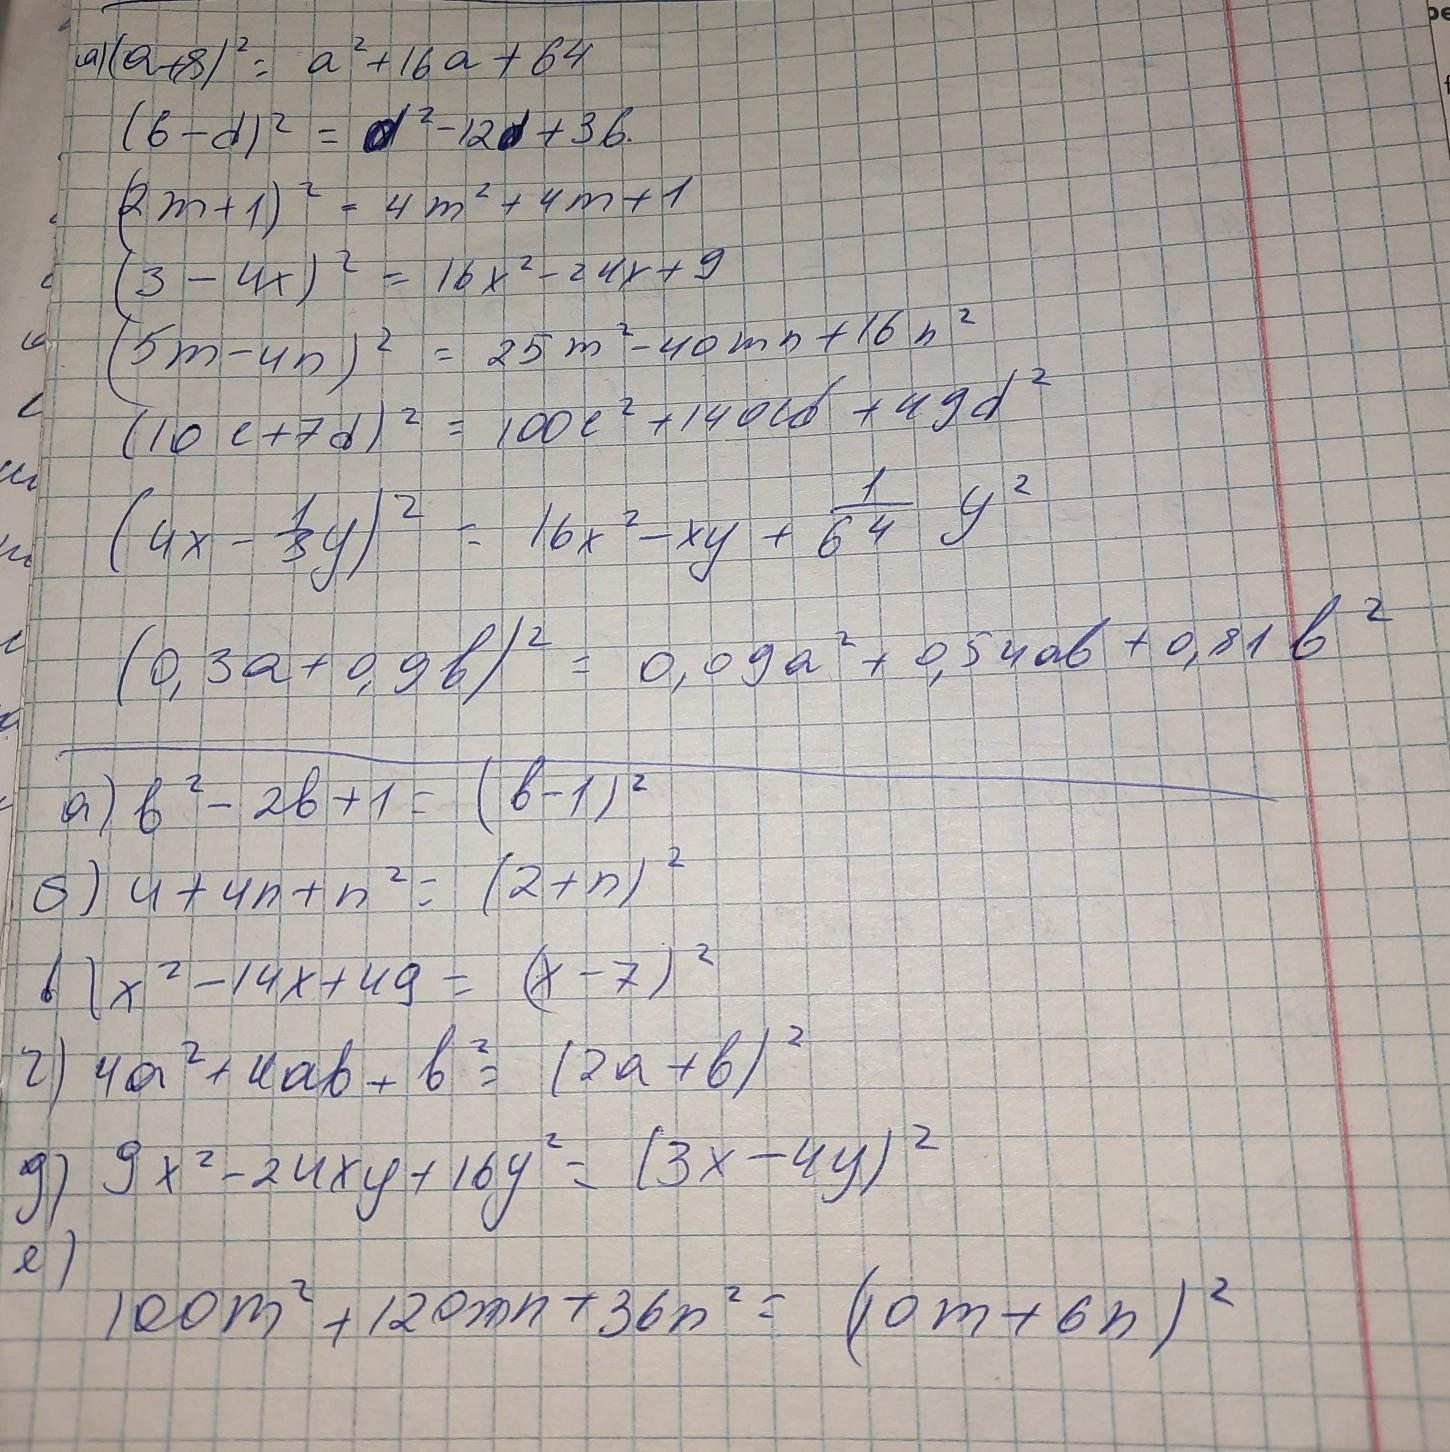 а) (a+8)² = a²+16a+64
(6-d)² = d²-12d+36.
(2m+1)² = 4m²+4m+1
(3-4x)² = 16x²-24x+9
(5m-4n)² = 25m²-40mn+16n²
(10c+7d)² = 100c²+140cd+49d²
(4x - 1/8y)² = 16x²-xy+1/64 y²
(0,3a+0,9b)² = 0,09a²+0,54ab+0,81b²
а) b²-2b+1 = (b-1)²
б) 4+4n+n² = (2+n)²
в) x²-14x+49 = (x-7)²
г) 4a²+4ab+b² = (2a+b)²
д) 9x²-24xy+16y² = (3x-4y)²
е)
100m²+120mn+36n² = (10m+6n)²